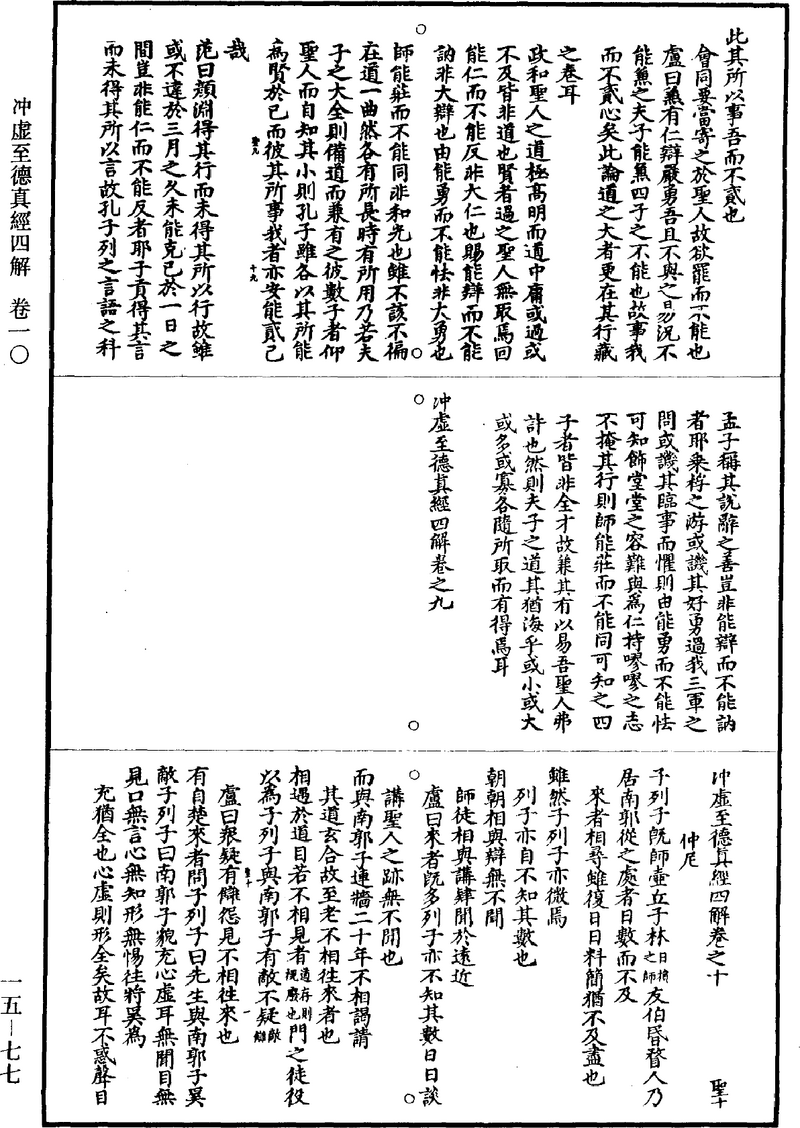 冲虛至德真經四解　卷一〇
一五—七七
此其所以事吾而不貳也
會同要當寄之於聖人故欲罷而不能也
盧曰兼有仁辯嚴勇吾且不與之易况不
能兼之夫子能兼四子之不能也故事我
而不貳心矣此論道之大者更在其行藏
之卷耳
政和聖人之道極高明而道中庸或過或
不及皆非道也賢者過之聖人無取焉回
能仁而不能反非大仁也賜能辯而不能
訥非大辯也由能勇而不能怯非大勇也
師能莊而不能同非和光也雖不該不徧
在道一曲然各有所長時有所用乃若夫
子之大全則備道而兼有之彼數子者仰
聖人而自知其小則孔子雖各以其所能
為賢於已而彼其所事我者亦安能貳已
聖九
十九
哉
范曰顏淵得其行而未得其所以行故雖
或不違於三月之久未能克已於一日之
間豈非能仁而不能反者耶子貢得其言
而未得其所以言故孔子列之言語之科
孟子稱其說辭之善豈非能辯而不能訥
者耶乘桴之游或譏其好勇過我三軍之
問或譏其臨事而懼則由能勇而不能怯
可知飾堂堂之容難與為仁持嘐嘐之志
不掩其行則師能莊而不能同可知之四
子者皆非全才故兼其有以易吾聖人弗
許也然則夫子之道其猶海乎或小或大
或多或寡各隨所取而有得焉耳
冲虛至德真經四解卷之九
冲虛至德真經四解卷之十
聖十
仲尼
子列子既師壺丘子林日損之師友伯昏瞀人乃
居南郭從之處者日數而不及
來者相尋雖復日日料簡猶不及盡也
雖然子列子亦微焉
列子亦自不知其數也
朝朝相與辯無不聞
師徒相與講肄聞於遠近
盧曰來者既多列子亦不知其數日日談
講聖人之跡無不聞也
而與南郭子連牆二十年不相謁請
其道玄合故至老不相往來者也
相遇於道目若不相見者道存則視廢也門之徒役
以為子列子與南郭子有敵不疑敵讎
聖十
一
盧曰衆疑有讎怨見不相往來也
有自楚來者問子列子曰先生與南郭子奚
敵子列子曰南郭子貌充心虛耳無聞目無
見口無言心無知形無惕往將奚為
充猶全也心虛則形全矣故耳不惑聲目